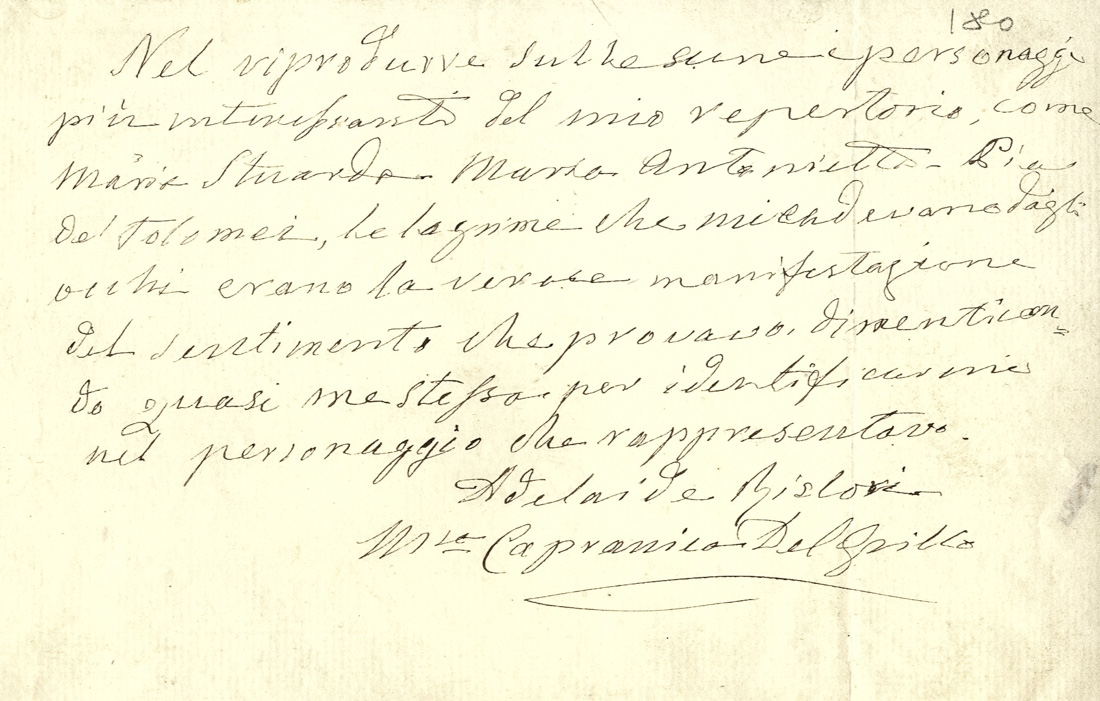 180
Nel riprodurre sulle scene i personaggi
più interessanti del mio repertorio, come
Maria Stuarda - Maria Antonietta - Pia
de' Tolomei, le lagrime che mi cadevano dagli
occhi erano la verace manifestazione
del sentimento che provavo, dimentican=
do quasi me stessa per identificarmi
nel personaggio che rappresentavo.
Adelaide Ristori
M.sa Capranica Del Grillo